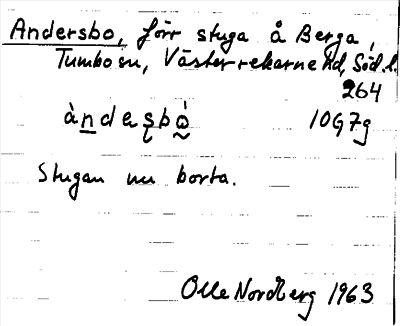 Andersbo, förr stuga å Berga,
Tumbo sn, Västerrekarne hd, Söd. l.
264
àndesbó 10G7g
Stugan nu borta.
Olle Nordberg 1963